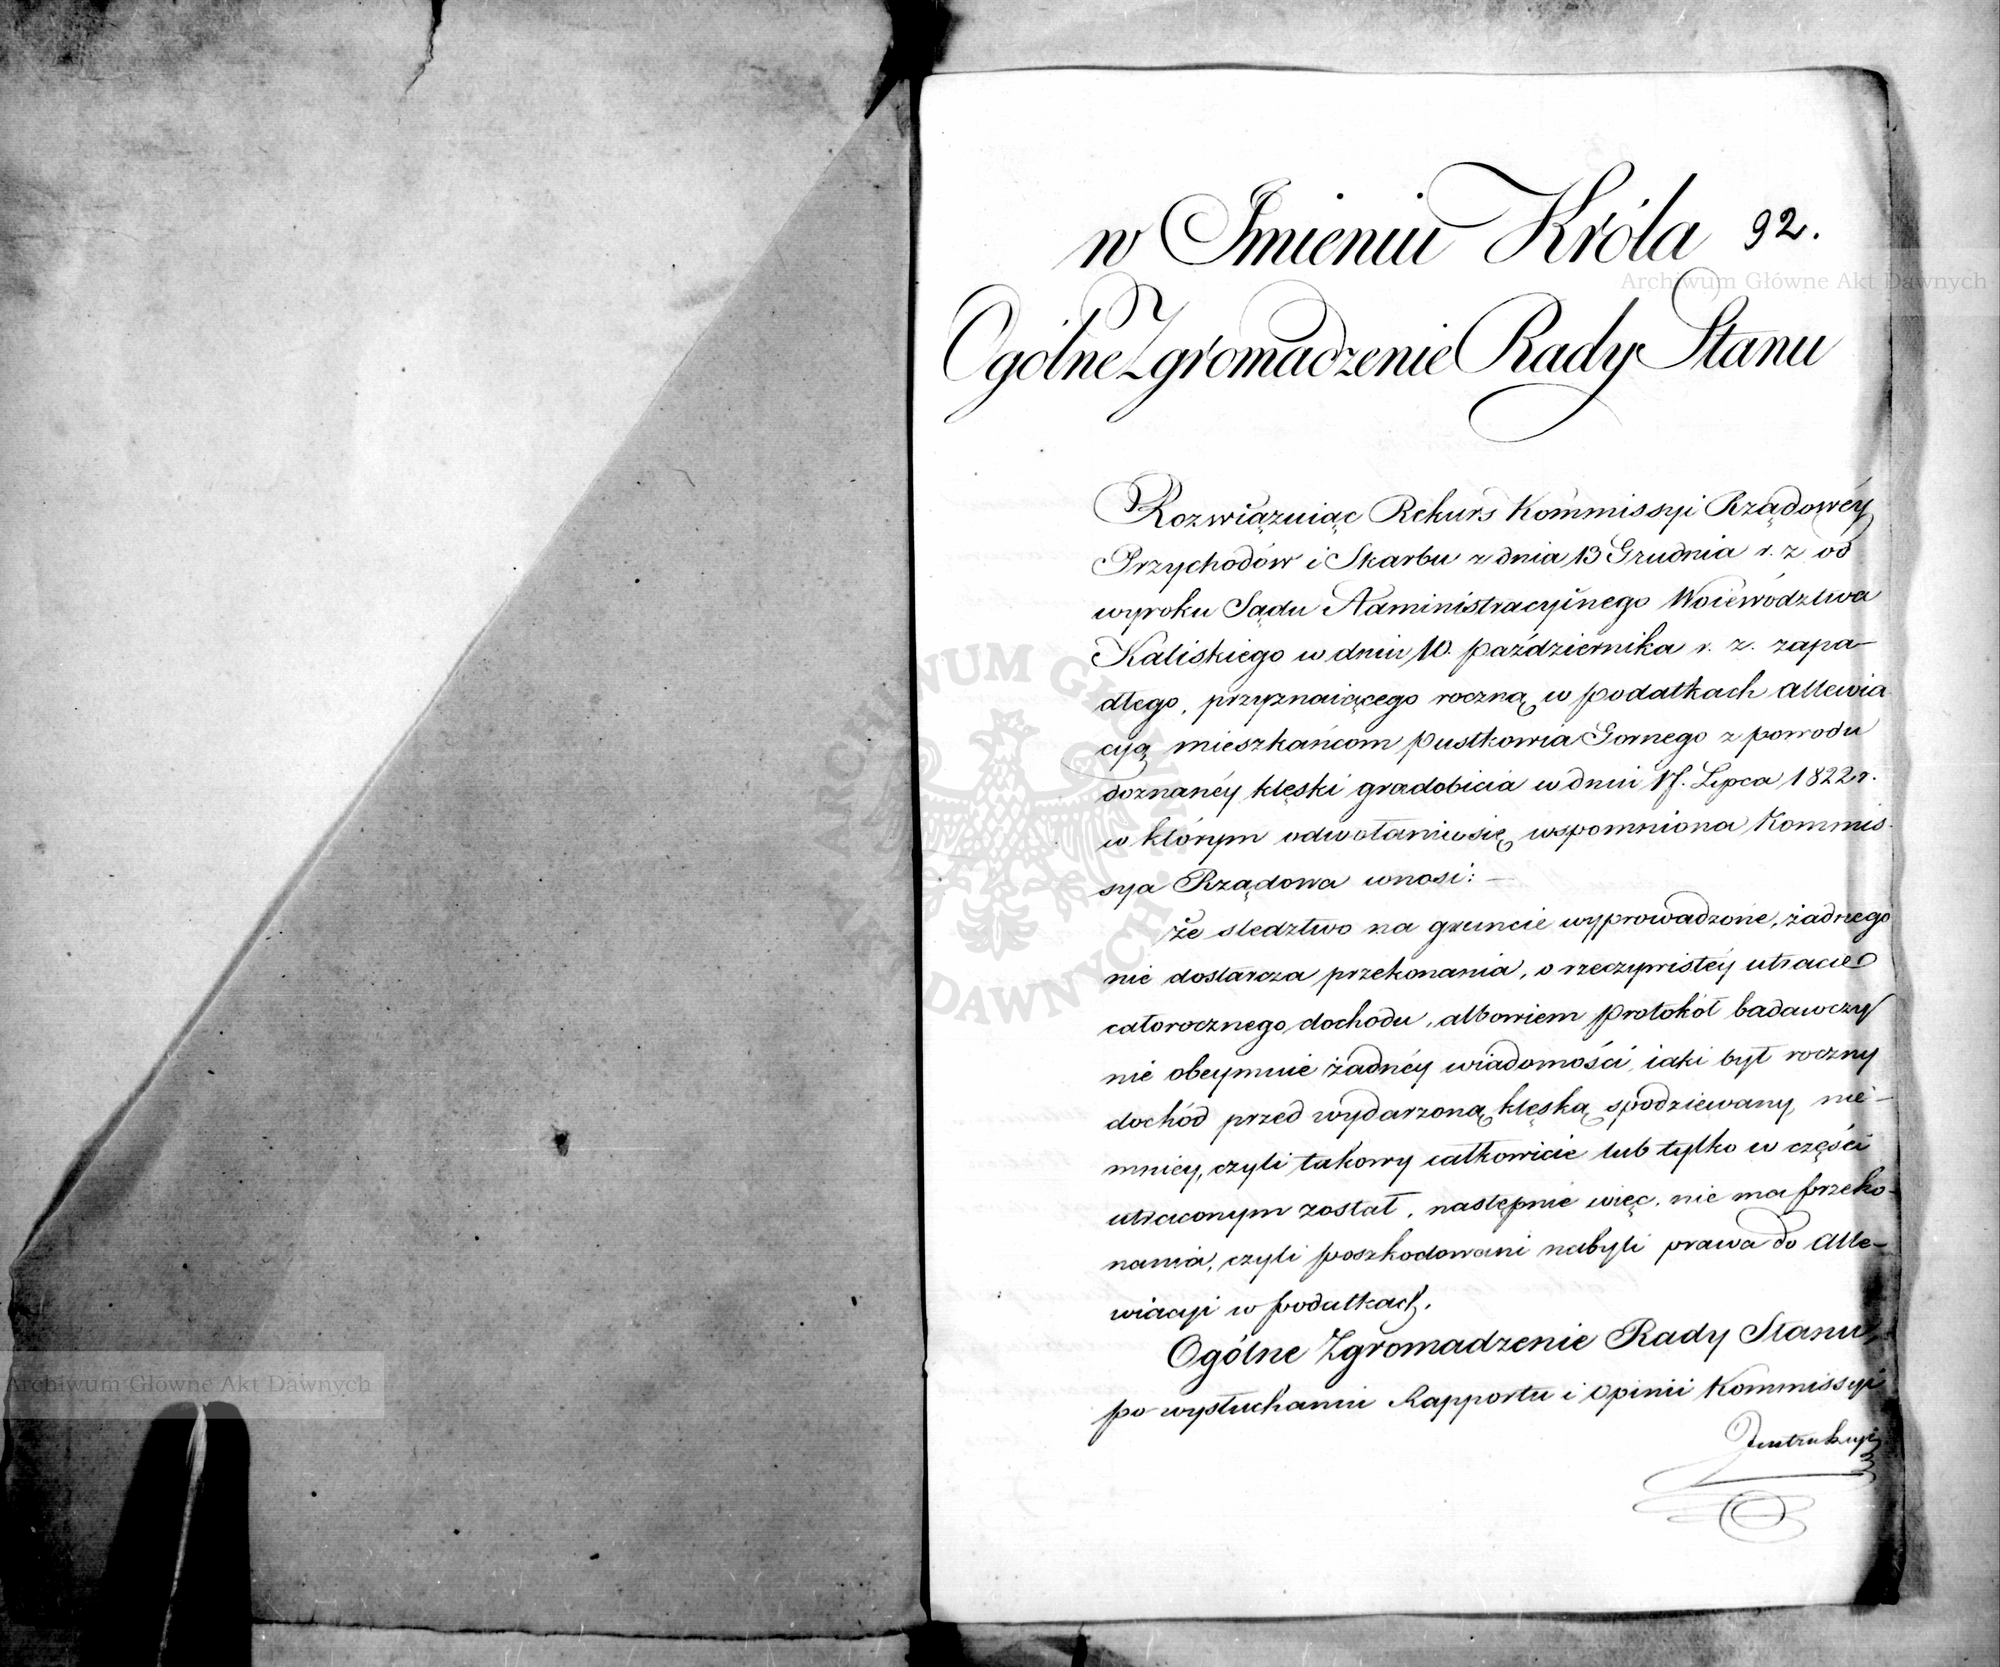 w Imieniu Króla 92.
Ogólne Zgromadzenie Rady Stanu
Rozwiązuiąc Rekurs Kommissyi Rządowéy
Przychodów i Skarbu z dnia 13 Grudnia r. z od
wyroku Sądu Administracyinego Woiewództwa
Kaliskiego w dniu 10. października r. z. zapa-
dłego, przyznaiącego roczną w podatkach allewia
cyą mieszkańcom pustkowia Gornego z powodu
doznanéy klęski gradobicia w dniu 17. Lipca 1822 r.
w którym odwołaniu się wspomniona Kommis-
sya Rządowa wnosi: —
że sledztwo na gruncie wyprowadzone, żadnego
nie dostarcza przekonania, o rzeczywistéy utracie
całorocznego dochodu, albowiem protokół badawczy
nie obeymuie żadnéy wiadomości, iaki był roczny
dochód przed wydarzoną klęską spodziewany, nie-
mniey, czyli takowy całkowicie lub tylko w części
utraconym został, następnie więc, nie ma przeko-
nania, czyli poszkodowani nabyli prawa do Alle-
wiacyi w podatkach.
Ogólne Zgromadzenie Rady Stanu,
po wysłuchaniu Rapportu i Opinii Kommissyi
Instrukcyi
Archiwum Główne Akt Dawnych
Archiwum Główne Akt Dawnych
ARCHIWUM GŁÓWNE AKT DAWNYCH